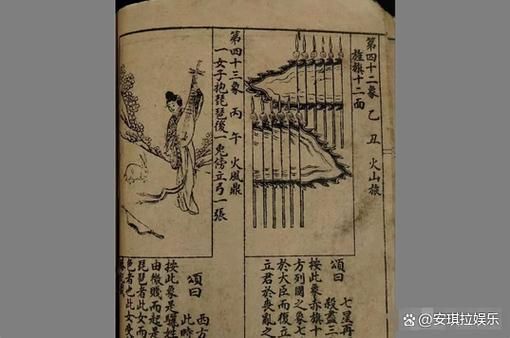 第四十二象 乙丑 火山旅
旌旗十二面
頌曰 七星再
殺盡三
按此象赤旗十
方列國之象七
於大臣而復立
立君於喪亂之
第四十三象 丙午 火風鼎
一女子抱琵琶後一兔傍立弓一張
頌曰 西方
此時
按此象是
由微賤而起是
琵琶者此女而
色者也此女
@安琪拉娱乐